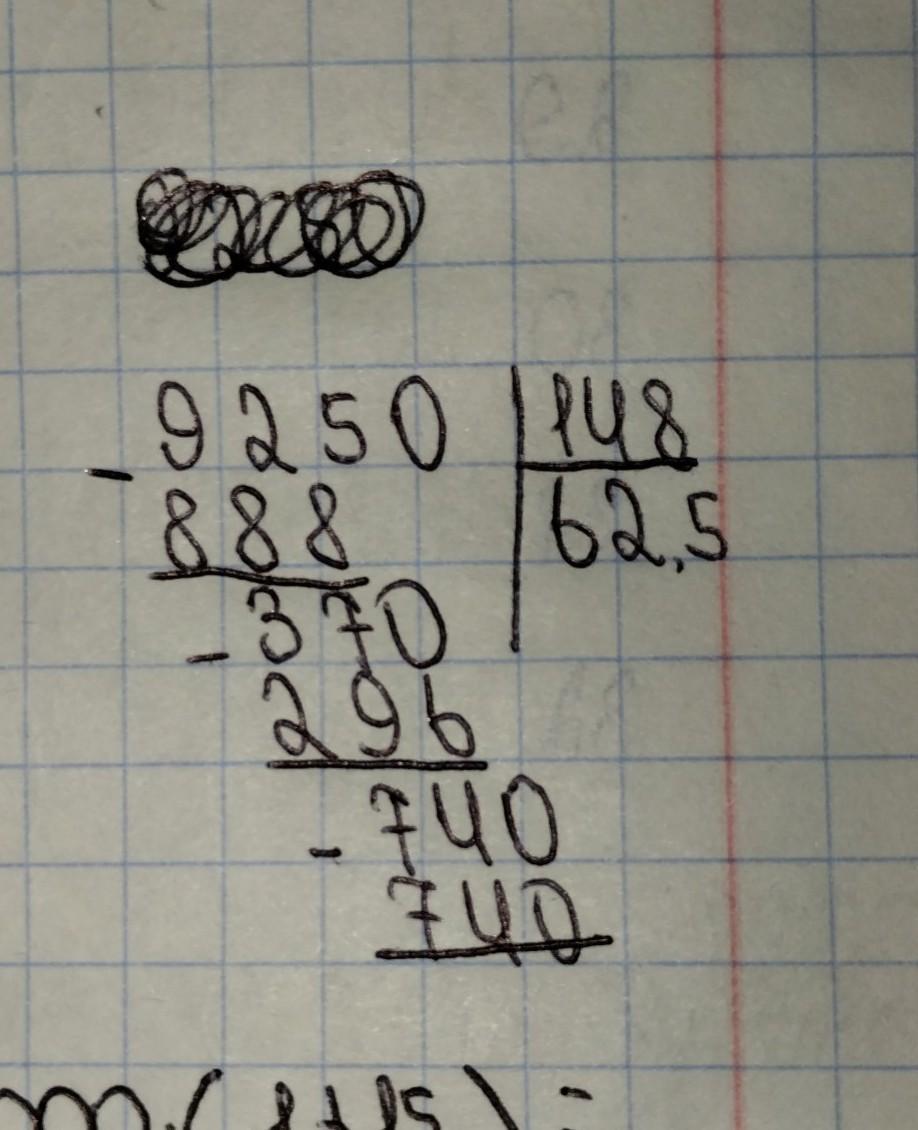 9250 148
- 62,5
888
- 370
296
- 740
740